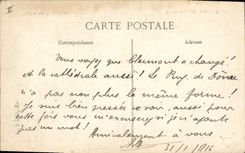 II
CARTE POSTALE
Correspondance
Adresse
Vous voyez que Clermont a changé !
et la cathédrale aussi ! Le Puy de Dôme
n'a pas non plus la même forme !
Je suis très pressée ce soir, aussi pour
cette fois vous m'excuserez si je n'ajoute
pas un mot ! Amicalement à vous